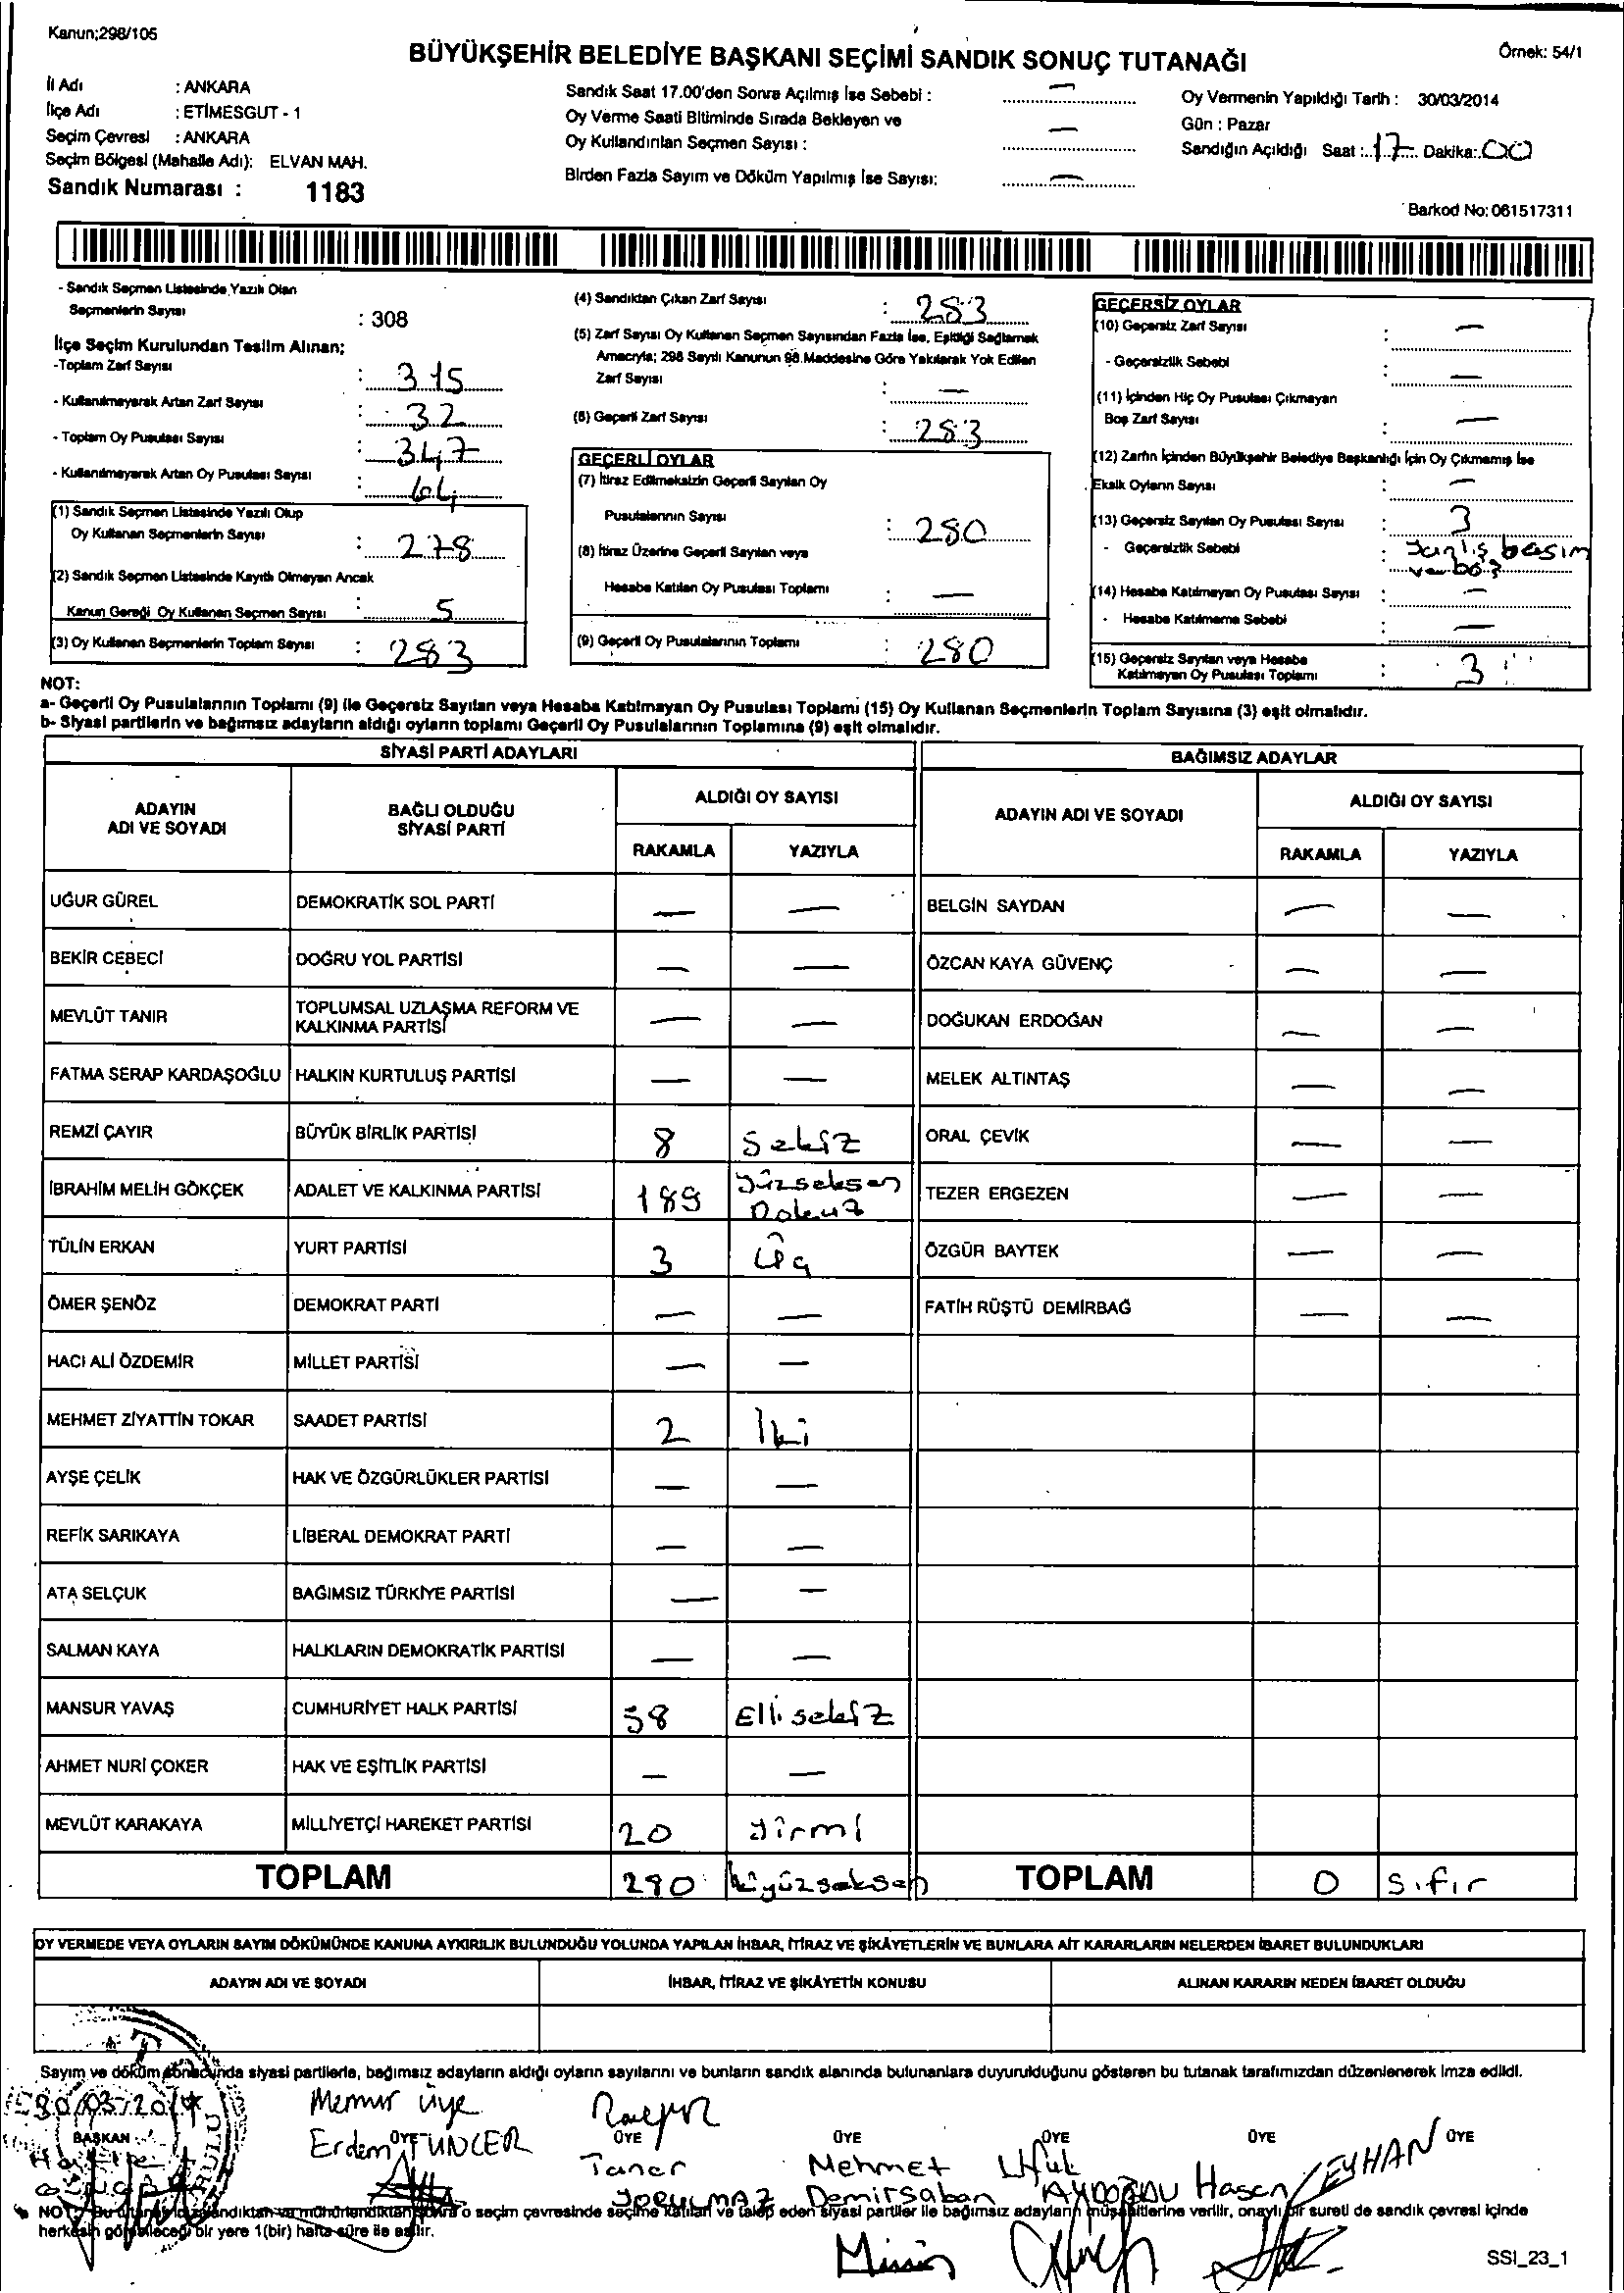 Kanun;298/105
BÜYÜKŞEHİR BELEDİYE BAŞKANI SEÇİMİ SANDIK SONUÇ TUTANAĞI
Örnek: 54/1
İl Adı : ANKARA
İlçe Adı : ETİMESGUT - 1
Seçim Çevresi : ANKARA
Seçim Bölgesi (Mahalle Adı): ELVAN MAH.
Sandık Numarası : 1183
Sandık Saat 17.00'den Sonra Açılmış İse Sebebi : —
Oy Verme Saati Bitiminde Sırada Bekleyen ve
Oy Kullandırılan Seçmen Sayısı : —
Birden Fazla Sayım ve Döküm Yapılmış İse Sayısı: —
Oy Vermenin Yapıldığı Tarih : 30/03/2014
Gün : Pazar
Sandığın Açıldığı Saat : 17 Dakika: 00
Barkod No: 061517311
- Sandık Seçmen Listesinde Yazılı Olan
Seçmenlerin Sayısı : 308
İlçe Seçim Kurulundan Teslim Alınan;
-Toplam Zarf Sayısı : 315
- Kullanılmayarak Artan Zarf Sayısı : 32
- Toplam Oy Pusulası Sayısı : 347
- Kullanılmayarak Artan Oy Pusulası Sayısı : 64
(1) Sandık Seçmen Listesinde Yazılı Olup
Oy Kullanan Seçmenlerin Sayısı : 278
(2) Sandık Seçmen Listesinde Kayıtlı Olmayan Ancak
Kanun Gereği Oy Kullanan Seçmen Sayısı : 5
(3) Oy Kullanan Seçmenlerin Toplam Sayısı : 283
(4) Sandıktan Çıkan Zarf Sayısı : 283
(5) Zarf Sayısı Oy Kullanan Seçmen Sayısından Fazla İse, Eşitliği Sağlamak
Amacıyla; 298 Sayılı Kanunun 98.Maddesine Göre Yakılarak Yok Edilen
Zarf Sayısı : —
(6) Geçerli Zarf Sayısı : 283
GEÇERLİ OYLAR
(7) İtiraz Edilmeksizin Geçerli Sayılan Oy
Pusulalarının Sayısı : 280
(8) İtiraz Üzerine Geçerli Sayılan veya
Hesaba Katılan Oy Pusulası Toplamı : —
(9) Geçerli Oy Pusulalarının Toplamı : 280
GEÇERSİZ OYLAR
(10) Geçersiz Zarf Sayısı : —
- Geçersizlik Sebebi : —
(11) İçinden Hiç Oy Pusulası Çıkmayan
Boş Zarf Sayısı : —
(12) Zarfın İçinden Büyükşehir Belediye Başkanlığı İçin Oy Çıkmamış İse
Eksik Oyların Sayısı : —
(13) Geçersiz Sayılan Oy Pusulası Sayısı : 3
- Geçersizlik Sebebi : Yanlış basım
ve boş
(14) Hesaba Katılmayan Oy Pusulası Sayısı : —
- Hesaba Katılmama Sebebi : —
(15) Geçersiz Sayılan veya Hesaba
Katılmayan Oy Pusulası Toplamı : 3
NOT:
a- Geçerli Oy Pusulalarının Toplamı (9) ile Geçersiz Sayılan veya Hesaba Katılmayan Oy Pusulası Toplamı (15) Oy Kullanan Seçmenlerin Toplam Sayısına (3) eşit olmalıdır.
b- Siyasi partilerin ve bağımsız adayların aldığı oyların toplamı Geçerli Oy Pusulalarının Toplamına (9) eşit olmalıdır.
SİYASİ PARTİ ADAYLARI BAĞIMSIZ ADAYLAR
ADAYIN ADI VE SOYADI BAĞLI OLDUĞU SİYASİ PARTİ ALDIĞI OY SAYISI ADAYIN ADI VE SOYADI ALDIĞI OY SAYISI
RAKAMLA YAZIYLA RAKAMLA YAZIYLA
UĞUR GÜREL DEMOKRATİK SOL PARTİ — — BELGİN SAYDAN — —
BEKİR CEBECİ DOĞRU YOL PARTİSİ — — ÖZCAN KAYA GÜVENÇ — —
MEVLÜT TANIR TOPLUMSAL UZLAŞMA REFORM VE KALKINMA PARTİSİ — — DOĞUKAN ERDOĞAN — —
FATMA SERAP KARDAŞOĞLU HALKIN KURTULUŞ PARTİSİ — — MELEK ALTINTAŞ — —
REMZİ ÇAYIR BÜYÜK BİRLİK PARTİSİ 8 Sekiz ORAL ÇEVİK — —
İBRAHİM MELİH GÖKÇEK ADALET VE KALKINMA PARTİSİ 189 Yüzseksen Dokuz TEZER ERGEZEN — —
TÜLİN ERKAN YURT PARTİSİ 3 Üç ÖZGÜR BAYTEK — —
ÖMER ŞENÖZ DEMOKRAT PARTİ — — FATİH RÜŞTÜ DEMİRBAĞ — —
HACI ALİ ÖZDEMİR MİLLET PARTİSİ — —
MEHMET ZİYATTİN TOKAR SAADET PARTİSİ 2 İki
AYŞE ÇELİK HAK VE ÖZGÜRLÜKLER PARTİSİ — —
REFİK SARIKAYA LİBERAL DEMOKRAT PARTİ — —
ATA SELÇUK BAĞIMSIZ TÜRKİYE PARTİSİ — —
SALMAN KAYA HALKLARIN DEMOKRATİK PARTİSİ — —
MANSUR YAVAŞ CUMHURİYET HALK PARTİSİ 58 Elli sekiz
AHMET NURİ ÇOKER HAK VE EŞİTLİK PARTİSİ — —
MEVLÜT KARAKAYA MİLLİYETÇİ HAREKET PARTİSİ 20 Yirmi
TOPLAM 280 İkiyüzseksen TOPLAM 0 Sıfır
OY VERMEDE VEYA OYLARIN SAYIM DÖKÜMÜNDE KANUNA AYKIRILIK BULUNDUĞU YOLUNDA YAPILAN İHBAR, İTİRAZ VE ŞİKÂYETLERİN VE BUNLARA AİT KARARLARIN NELERDEN İBARET BULUNDUKLARI
ADAYIN ADI VE SOYADI İHBAR, İTİRAZ VE ŞİKÂYETİN KONUSU ALINAN KARARIN NEDEN İBARET OLDUĞU
Sayım ve döküm sonucunda siyasi partilerle, bağımsız adayların aldığı oyların sayılarını ve bunların sandık alanında bulunanlara duyurulduğunu gösteren bu tutanak tarafımızdan düzenlenerek imza edildi.
30/03/2014 Memur Üye
BAŞKAN ÜYE ÜYE ÜYE ÜYE ÜYE ÜYE
Erdem TUNCER Taner YORULMAZ Mehmet Demirsaban Ufuk AYDOĞDU Hasan CEYHAN
NOT: Bu tutanak imzalandıktan ve mühürlendikten sonra o seçim çevresinde seçime katılan ve talep eden siyasi partiler ile bağımsız adayların müşahitlerine verilir, onaylı bir sureti de sandık çevresi içinde
herkesin görebileceği bir yere 1(bir) hafta süre ile asılır.
SSI_23_1